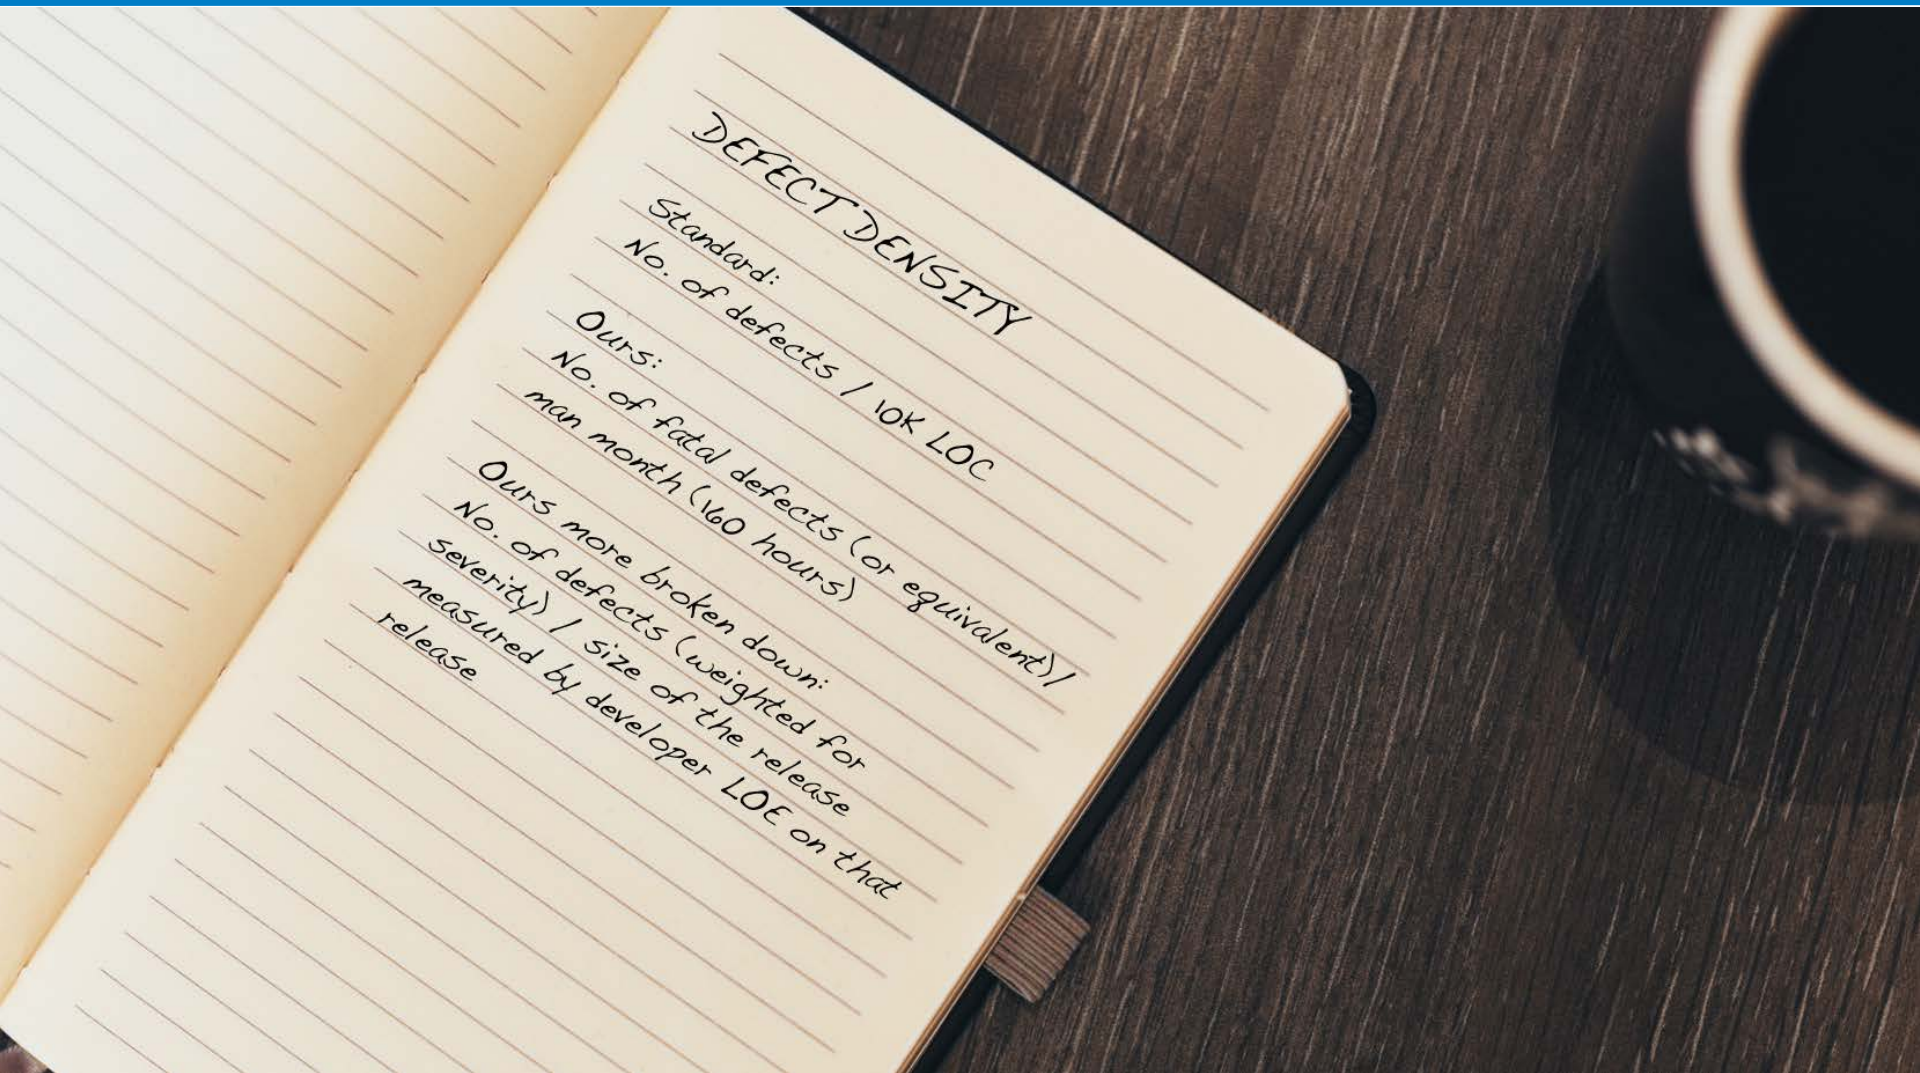 DEFECT DENSITY
Standard:
No. of defects / 10K LOC
Ours:
No. of fatal defects (or equivalent) /
man month (160 hours)
Ours more broken down:
No. of defects (weighted for
severity) / size of the release
measured by developer LOE on that
release